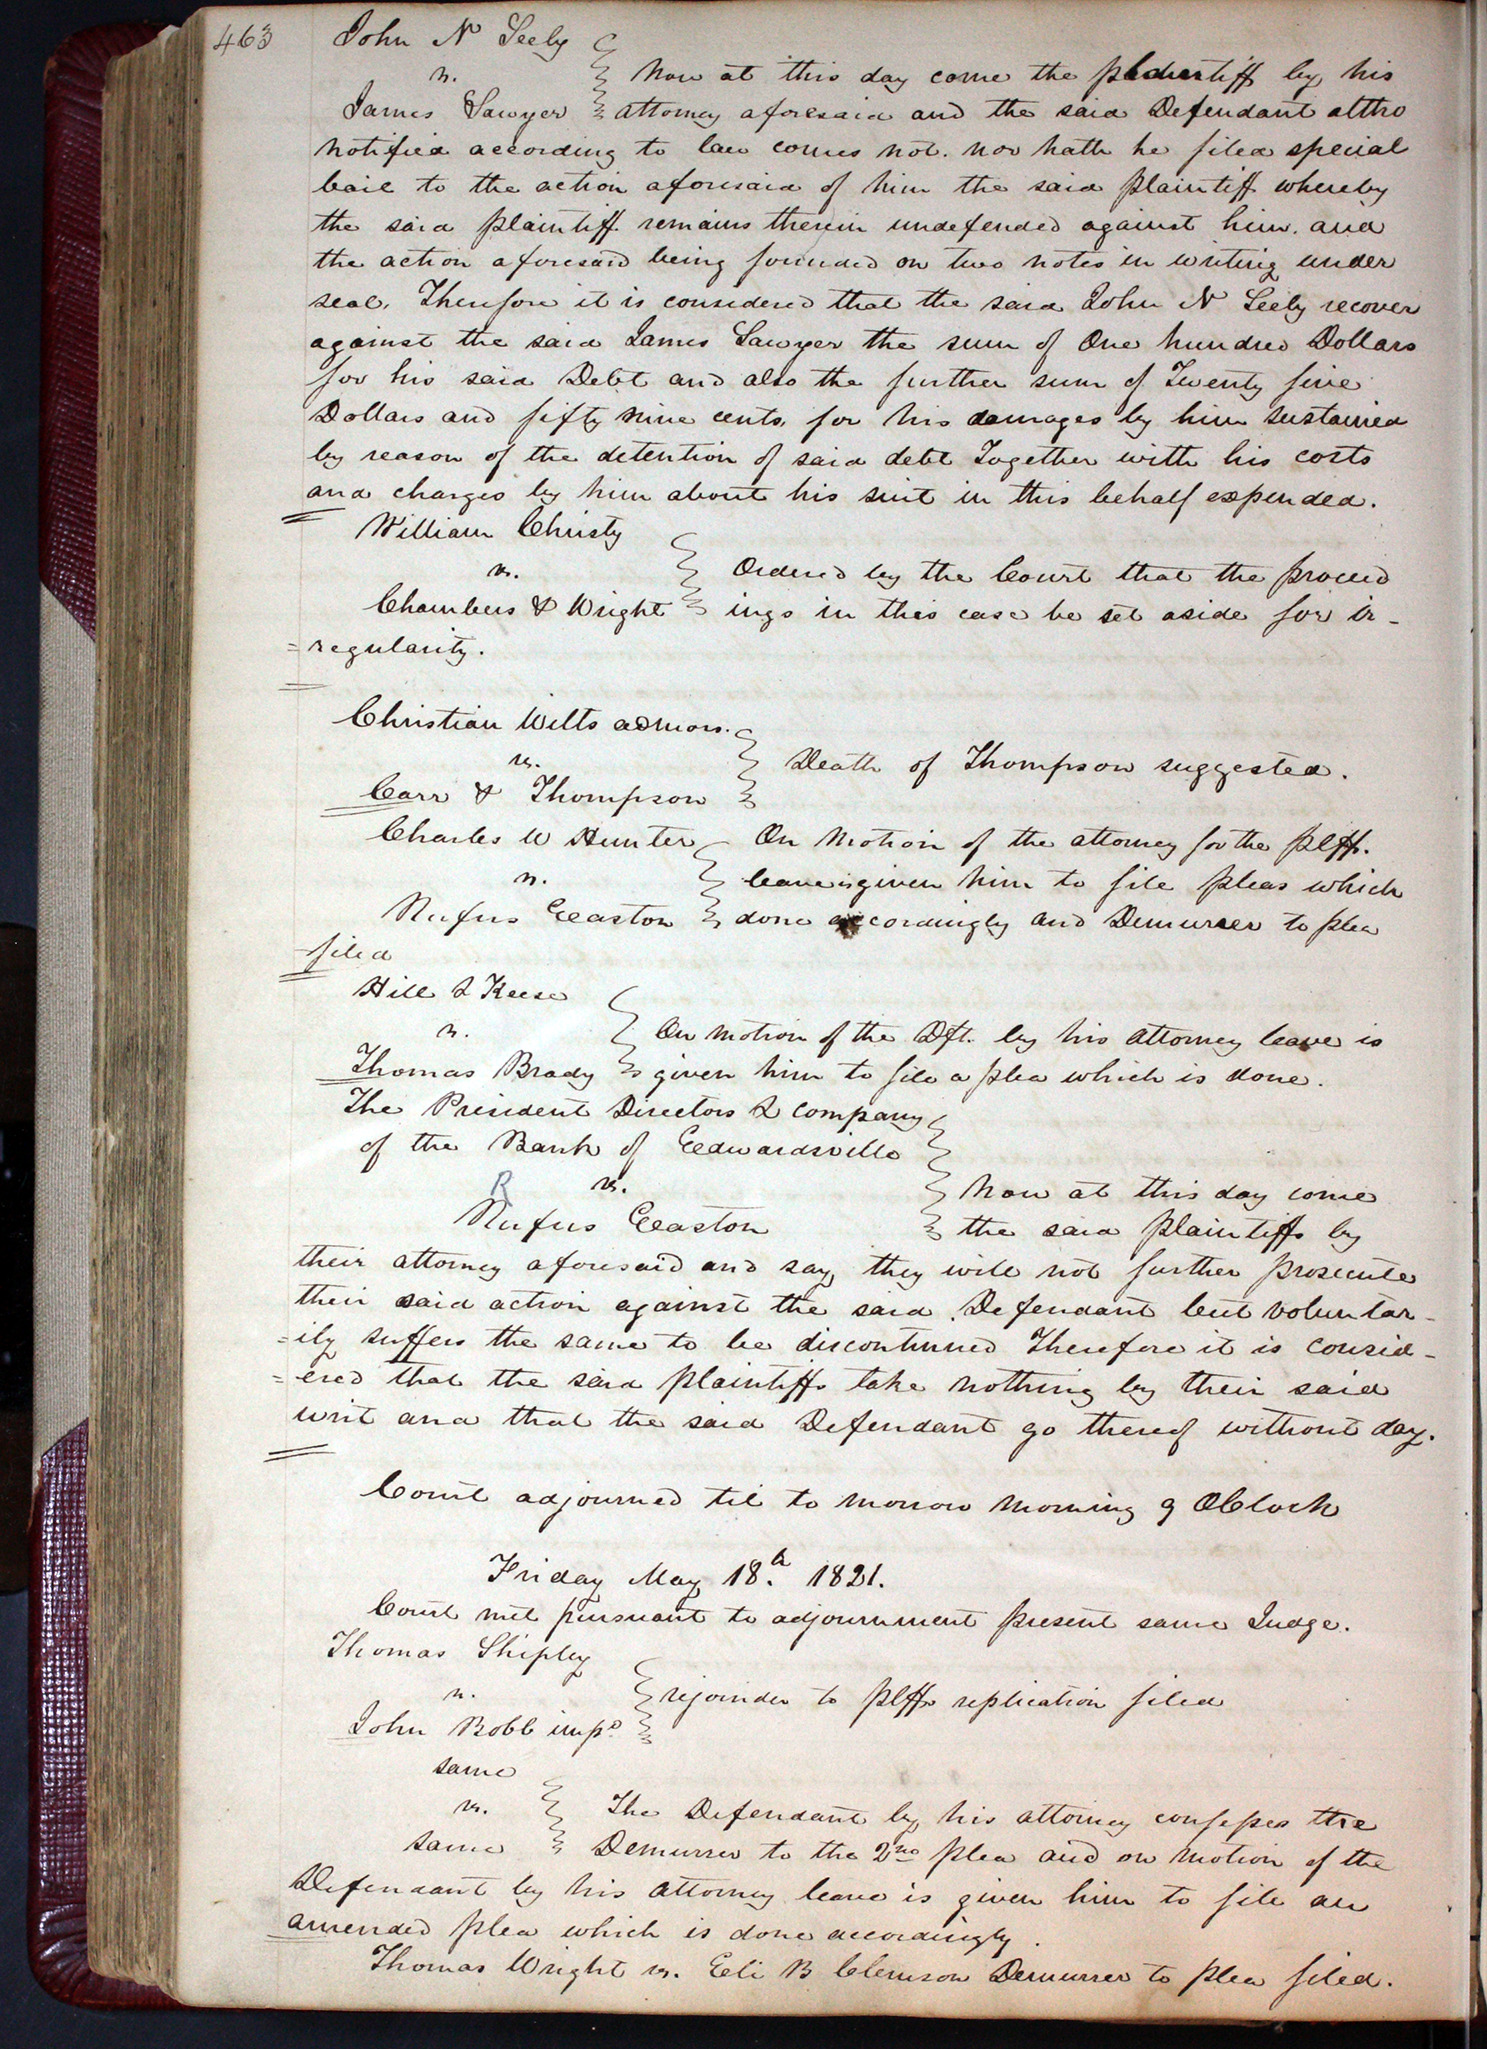 463
John N Seely
vs.
James Sawyer
Now at this day come the plaintiff by his
attorney aforesaid and the said Defendant altho
notified according to law comes not. nor hath he filed special
bail to the action aforesaid of him the said plaintiff whereby
the said plaintiff remains therein undefended against him. and
the action aforesaid being founded on two notes in writing under
seal. Therefore it is considered that the said John N Seely recover
against the said James Sawyer the sum of One hundred Dollars
for his said Debt and also the further sum of Twenty five
Dollars and fifty nine cents for his damages by him sustained
by reason of the detention of said debt Together with his costs
and charges by him about his suit in this behalf expended.
William Christy
vs.
Chambers & Wright
Ordered by the Court that the proceed
ings in this case be set aside for ir-
=regularity.
Christian Wilts admors.
vs.
Carr & Thompson
Death of Thompson suggested.
Charles W Hunter
vs.
Rufus Easton
On Motion of the attorney for the plff.
leave is given him to file pleas which
done accordingly and Demurrer to plea
filed
Hill & Keese
vs.
Thomas Brady
On motion of the Dft. by his attorney leave is
given him to file a plea which is done.
The President Directors & company
of the Bank of Edwardsville
vs.
R
Rufus Easton
Now at this day come
the said plaintiffs by
their attorney aforesaid and say they will not further prosecute
their said action against the said Defendant but voluntar-
=ily suffers the same to be discontinued Therefore it is consid-
=ered that the said plaintiffs take nothing by their said
writ and that the said Defendant go thereof without day.
Court adjourned til to morrow morning 9 OClock
Friday May 18.h 1821.
Court met pursuant to adjournment present same Judge.
Thomas Shipley
vs.
John Bobb impd
rejoinder to plffs replication filed
same
vs.
same
The Defendant by his attorney confesses the
Demurrer to the 2nd plea and on motion of the
Defendant by his attorney leave is given him to file an
amended plea which is done accordingly.
Thomas Wright vs. Eli B Clemson Demurrer to plea filed.